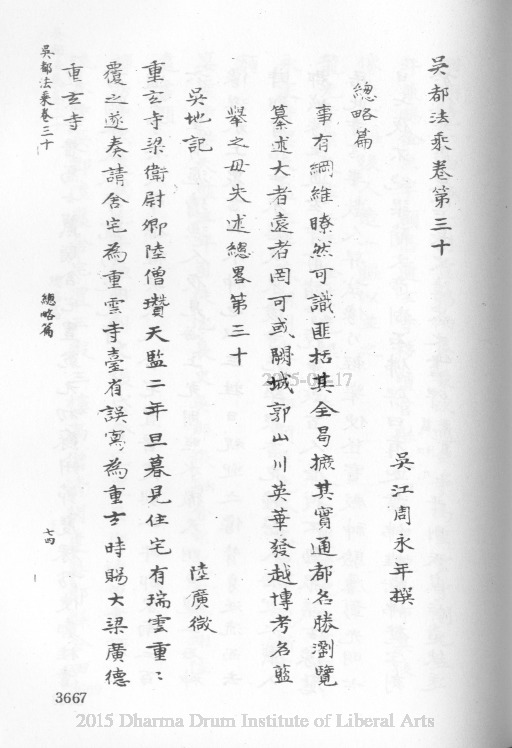 吳都法乘卷第三十
吳江周永年撰
總略篇
事有綱維瞭然可識匪括其全曷摭其實通都名勝瀏覽
纂述大者遠者罔可或闕城郭山川英華發越博考名藍
舉之毋失述總畧第三十
吳地記
陸廣微
重玄寺梁衛尉卿陸僧瓚天監二年旦暮見住宅有瑞雲重〻
覆之遂奏請舍宅為重雲寺臺省誤寫為重玄時賜大梁廣德
重玄寺
吳都法乘卷三十
總略篇
七四
3667
2015-04-17
2015 Dharma Drum Institute of Liberal Arts